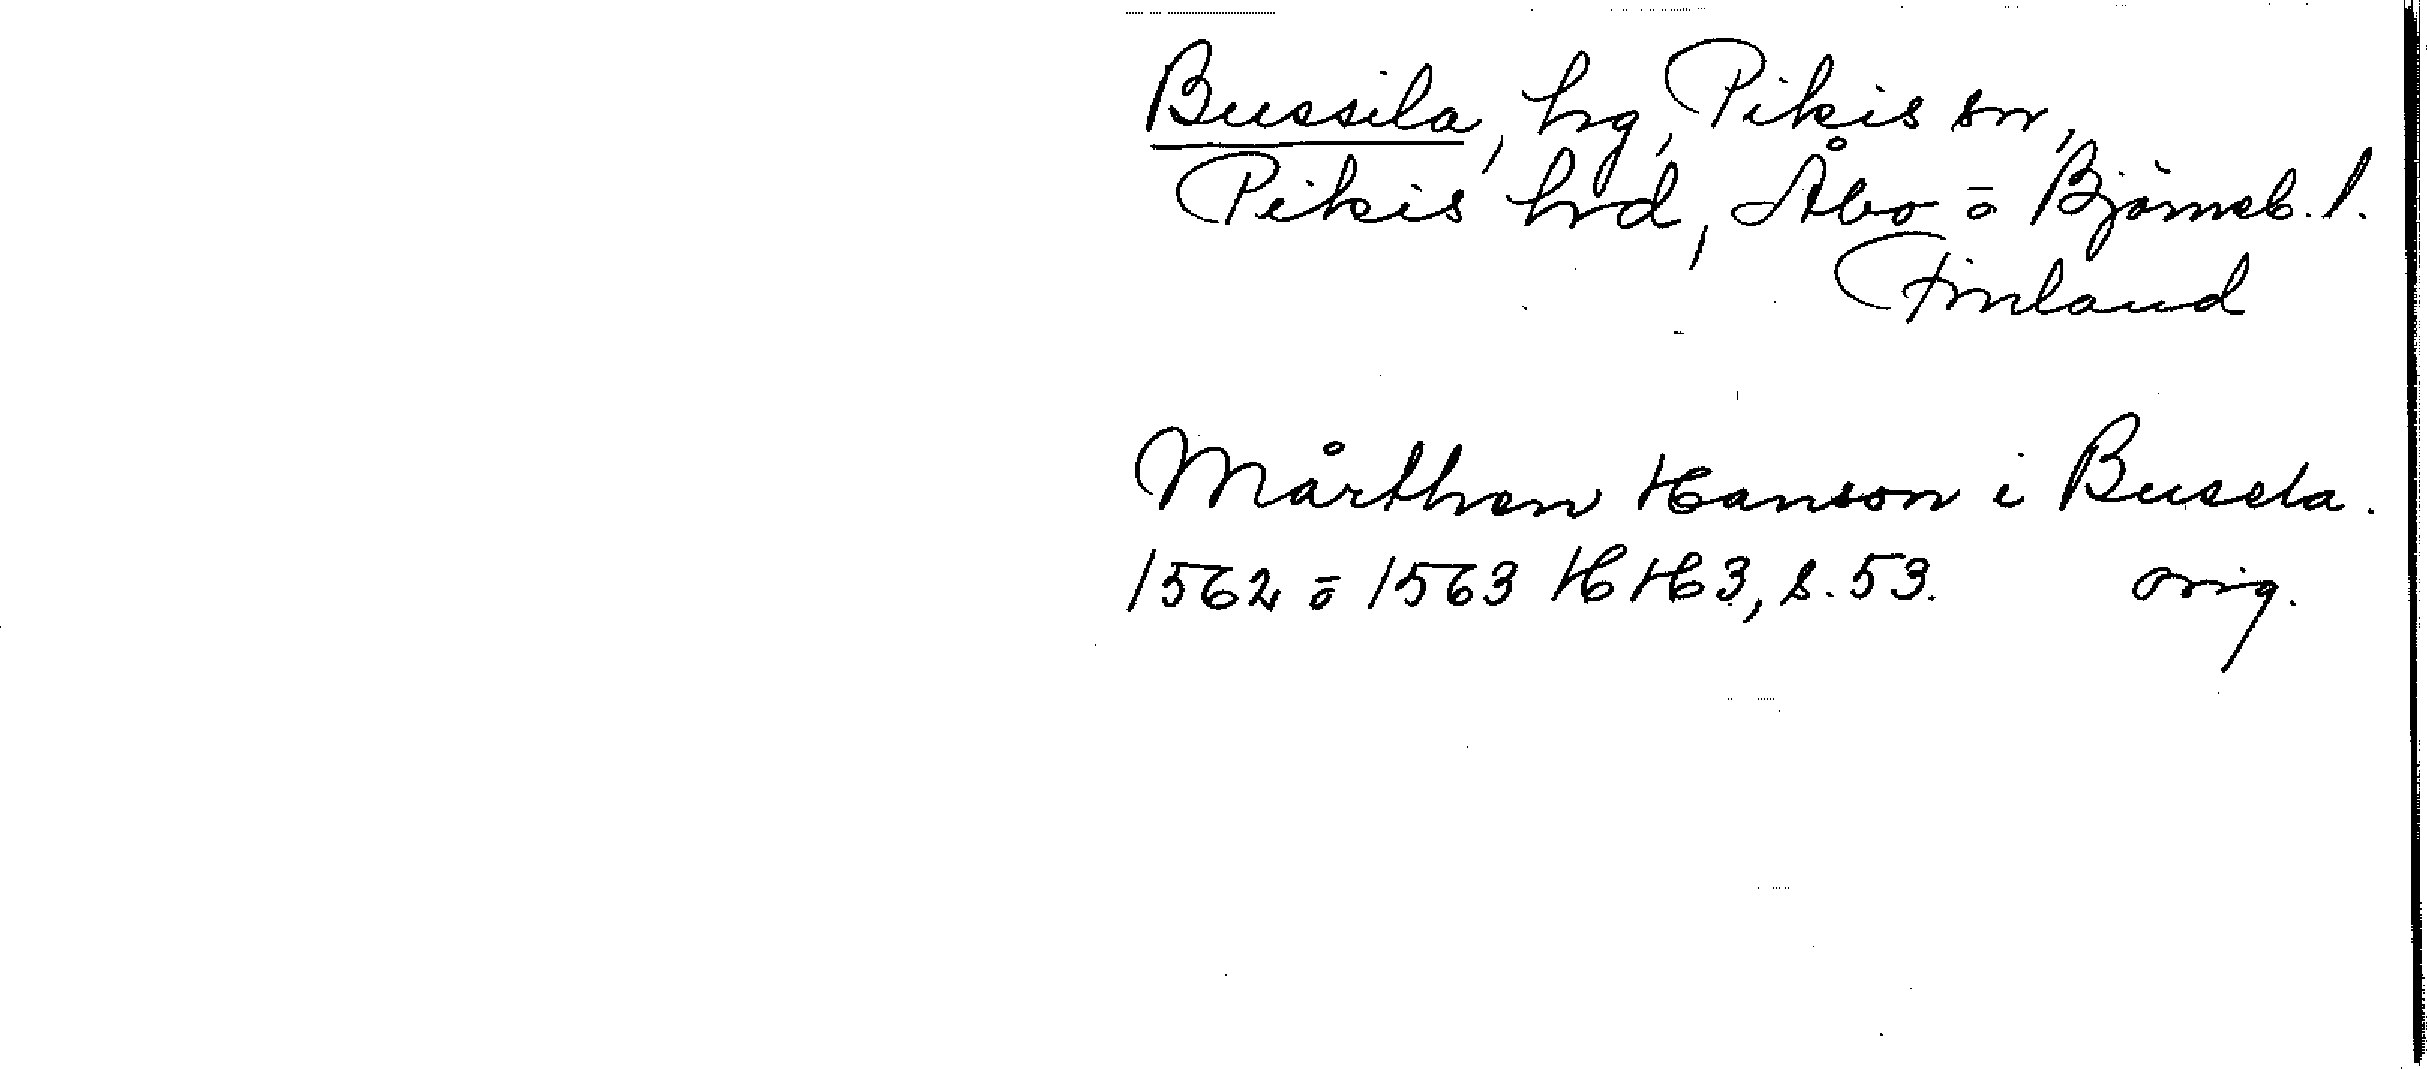 Bussila, hg, Pikis sn,
Pikis hrd, Åbo o Björneb. l.
Finland
Mårthen Hanson i Busela.
1562 o 1563 HH3, s. 53. orig.